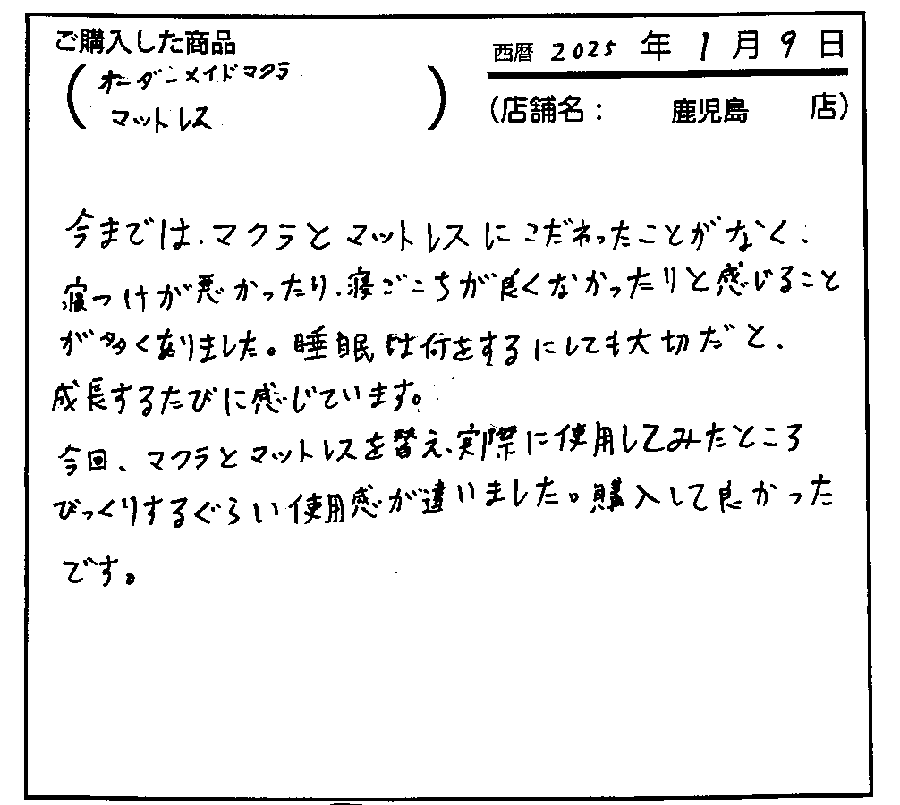 ご購入した商品
西暦 2025 年 1 月 9 日
(オーダーメイドマクラ
マットレス)
(店舗名: 鹿児島 店)
今までは、マクラとマットレスにこだわったことがなく、
寝つけが悪かったり、寝ごこちが良くなかったりと感じること
が多くありました。睡眠は何をするにしても大切だと、
成長するたびに感じています。
今回、マクラとマットレスを替え、実際に使用してみたところ
びっくりするぐらい使用感が違いました。購入して良かった
です。